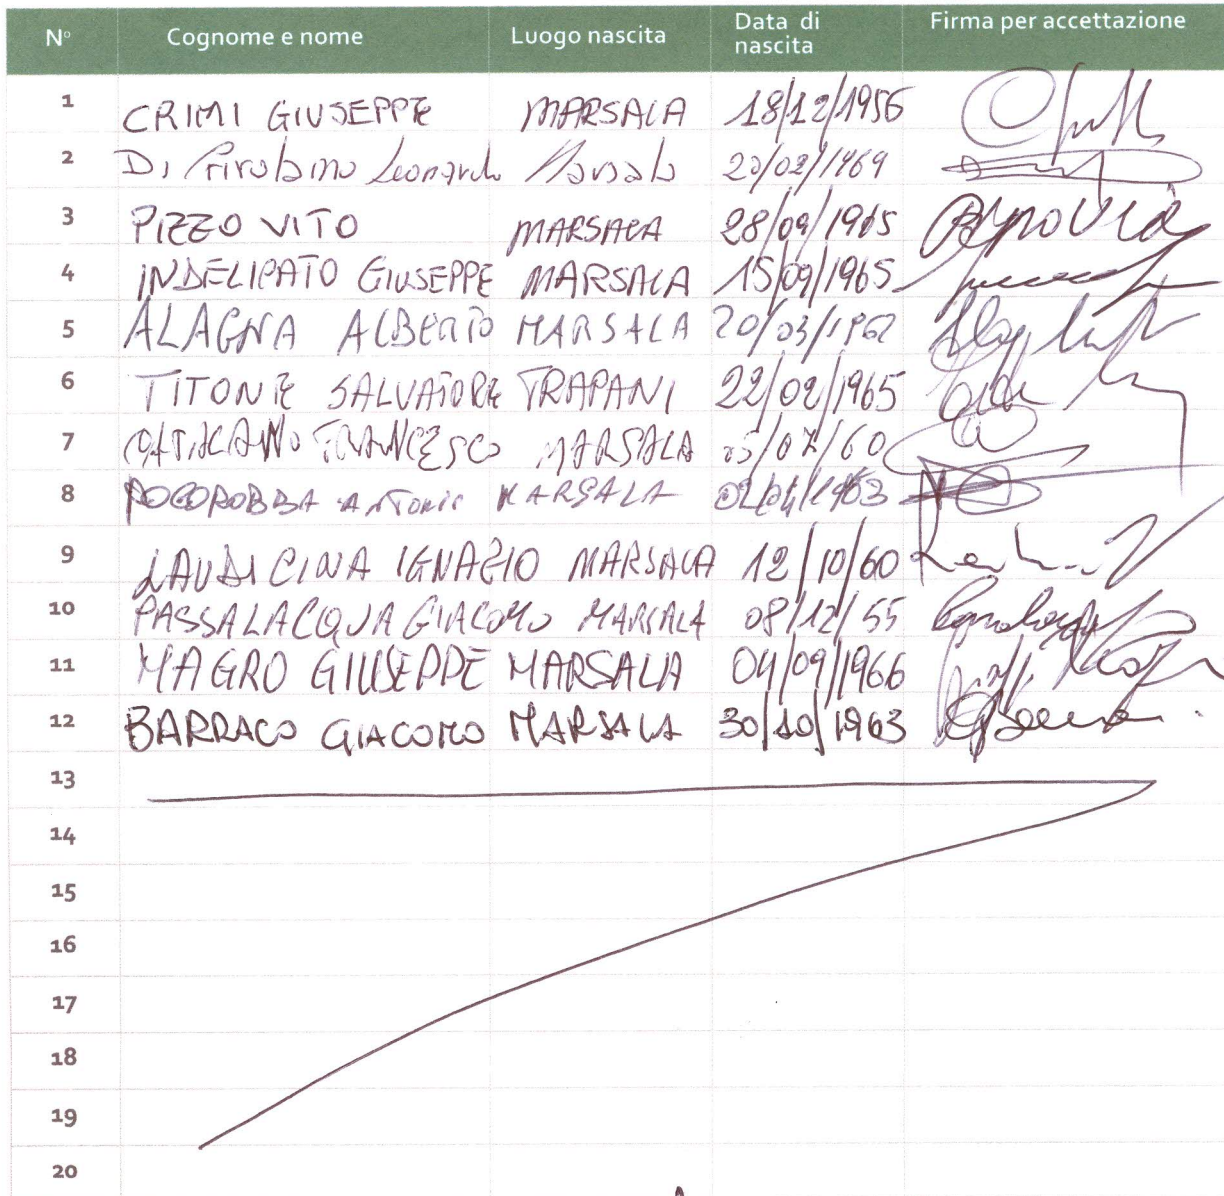 N° Cognome e nome Luogo nascita Data di nascita Firma per accettazione
1 CRIMI GIUSEPPE MARSALA 18/12/1956
2 Di Girolamo Leonardo Marsala 20/02/1969
3 PIZZO VITO MARSALA 28/09/1965 Pizzo Vito
4 INDELICATO GIUSEPPE MARSALA 15/09/1965
5 ALAGNA ALBERTO MARSALA 20/03/1962
6 TITONE SALVATORE TRAPANI 22/02/1965
7 FRANCESCO MARSALA 05/07/60
8 POCOROBBA Antonio MARSALA 02/04/1963
9 LAUDICINA IGNAZIO MARSALA 12/10/60
10 PASSALACQUA GIACOMO MARSALA 08/12/55
11 MAGRO GIUSEPPE MARSALA 04/09/1966
12 BARRACO GIACOMO MARSALA 30/10/1963
13
14
15
16
17
18
19
20